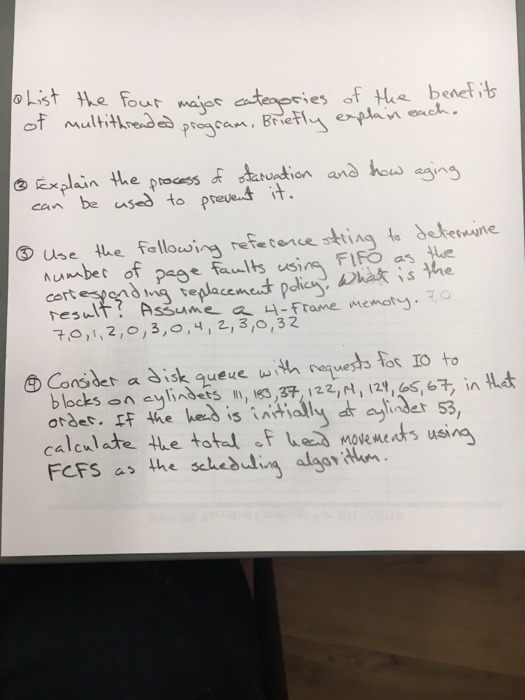 ① List the four major categories of the benefits
of multithreaded program, Briefly explain each.
② Explain the process of starvation and how aging
can be used to prevent it.
③ Use the following reference string to determine
number of page faults using FIFO as the
corresponding replacement policy. What is the
result? Assume a 4-frame memory. 7,0
7,0,1,2,0,3,0,4,2,3,0,32
④ Consider a disk queue with requests for IO to
blocks on cylinders 111, 183, 37, 122, 14, 124, 65, 67, in that
order. If the head is initially at cylinder 53,
calculate the total of head movements using
FCFS as the scheduling algorithm.